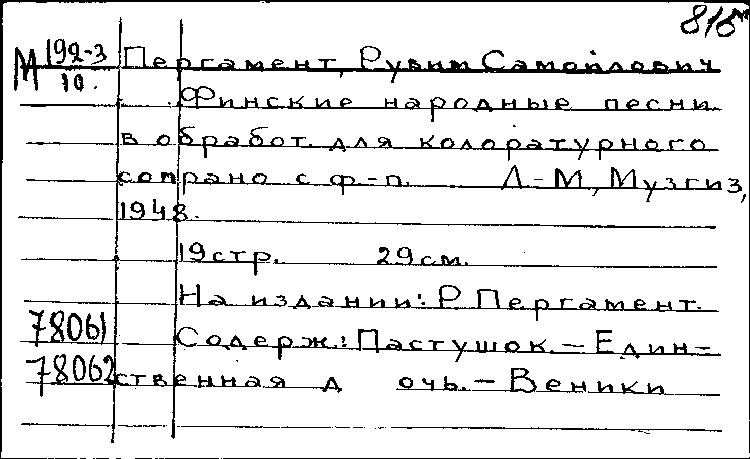 М 192-3/10.
Пергамент, Рувим Самойлович
Финские народные песни
в обработ. для колоратурного
сопрано с ф-п. Л-М, Музгиз,
1948.
19 стр. 29 см.
На издании: Р. Пергамент.
78061 Содерж.: Пастушок. – Един-
78062 ственная д очь. – Веники